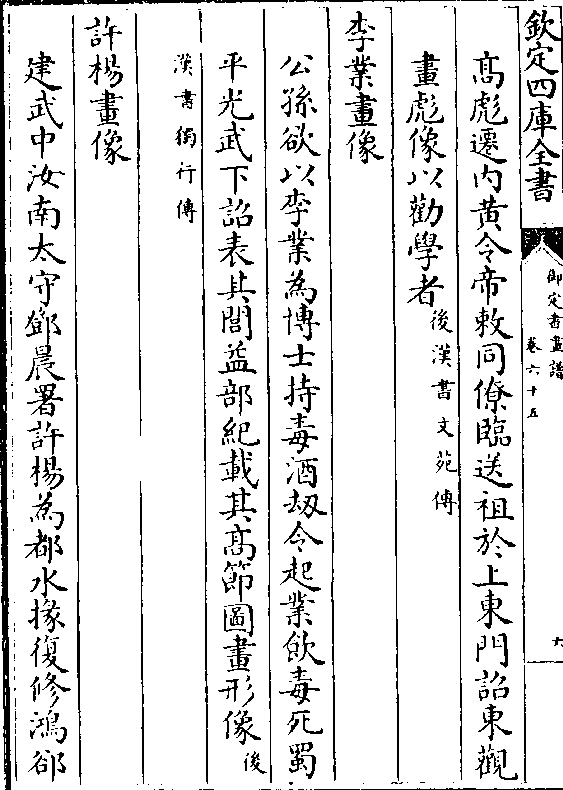 欽定四庫全書
御定書畫譜
卷六十五
六
高彪遷内黄令帝敕同僚臨送祖於上東門詔東觀
畫彪像以勸學者後漢書文苑傳
李業畫像
公孫欲以李業為博士持毒酒刼令起業飲毒死蜀
平光武下詔表其閭益部紀載其高節圖畫形像後
漢書獨行傳
許楊畫像
建武中汝南太守鄧晨署許楊為都水掾復修鴻郤